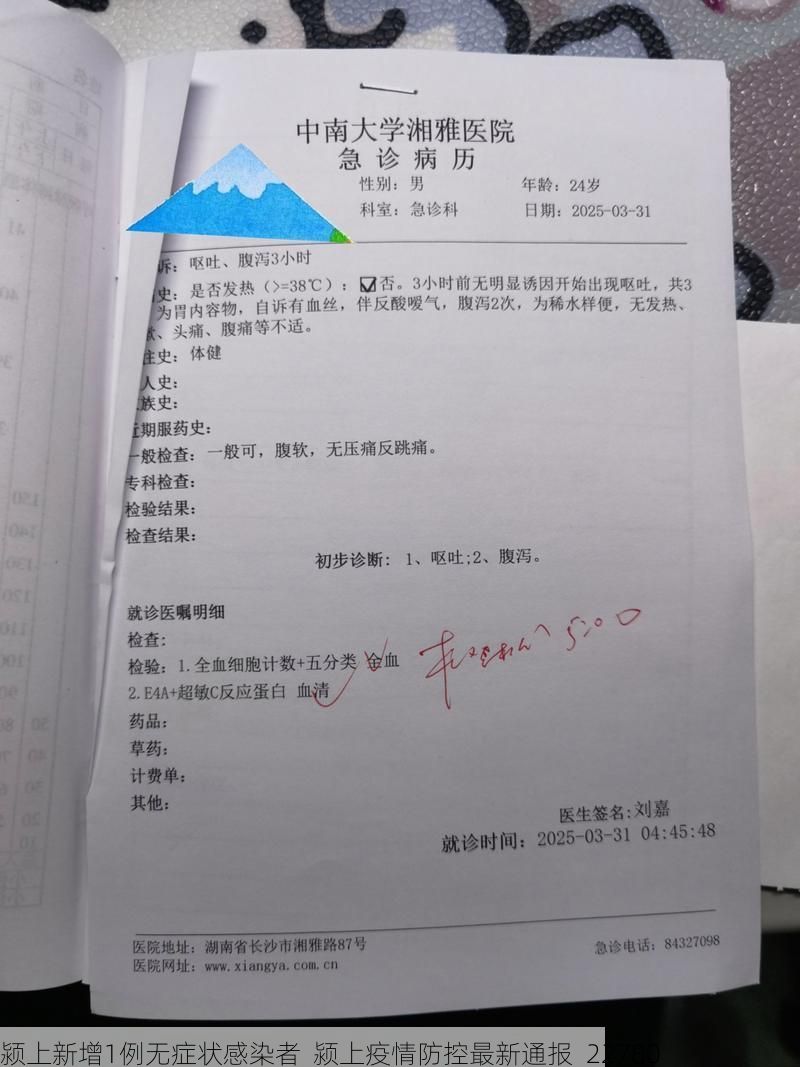 中南大学湘雅医院
急诊病历
性别：男 年龄：24岁
科室：急诊科 日期：2025-03-31
诉：呕吐、腹泻3小时
史：是否发热（>=38℃）：☑否。3小时前无明显诱因开始出现呕吐，共3
为胃内容物，自诉有血丝，伴反酸嗳气，腹泻2次，为稀水样便，无发热、
、头痛、腹痛等不适。
往史：体健
人史：
族史：
近期服药史：
一般检查：一般可，腹软，无压痛反跳痛。
专科检查：
检验结果：
检查结果：
初步诊断：1、呕吐;2、腹泻。
就诊医嘱明细
检查：
检验：1.全血细胞计数+五分类 全血
2.E4A+超敏C反应蛋白 血清
5:00
药品：
草药：
计费单：
其他：
医生签名:刘嘉
就诊时间：2025-03-31 04:45:48
医院地址：湖南省长沙市湘雅路87号 急诊电话：84327098
医院网址：www.xiangya.com.cn
颍上新增1例无症状感染者 颍上疫情防控最新通报